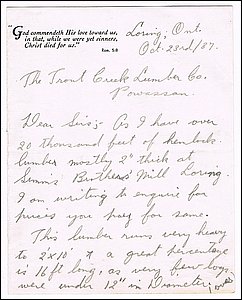 "God commendeth His love toward us,
in that, while we were yet sinners,
Christ died for us."
Rom. 5:8
Loring, Ont.
Oct. 23rd/37.
The Trout Creek Lumber Co.
Powassan.
Dear Sirs;- As I have over
20 thousand feet of hemlock
lumber mostly 2" thick at
Brothers' Mill Loring.
I am writing to enquire for
prices you pay for same.
This lumber runs very heavy
to 2x10, & a great percentage
is 16 ft long, as very few logs
were under 12" in Diameter,